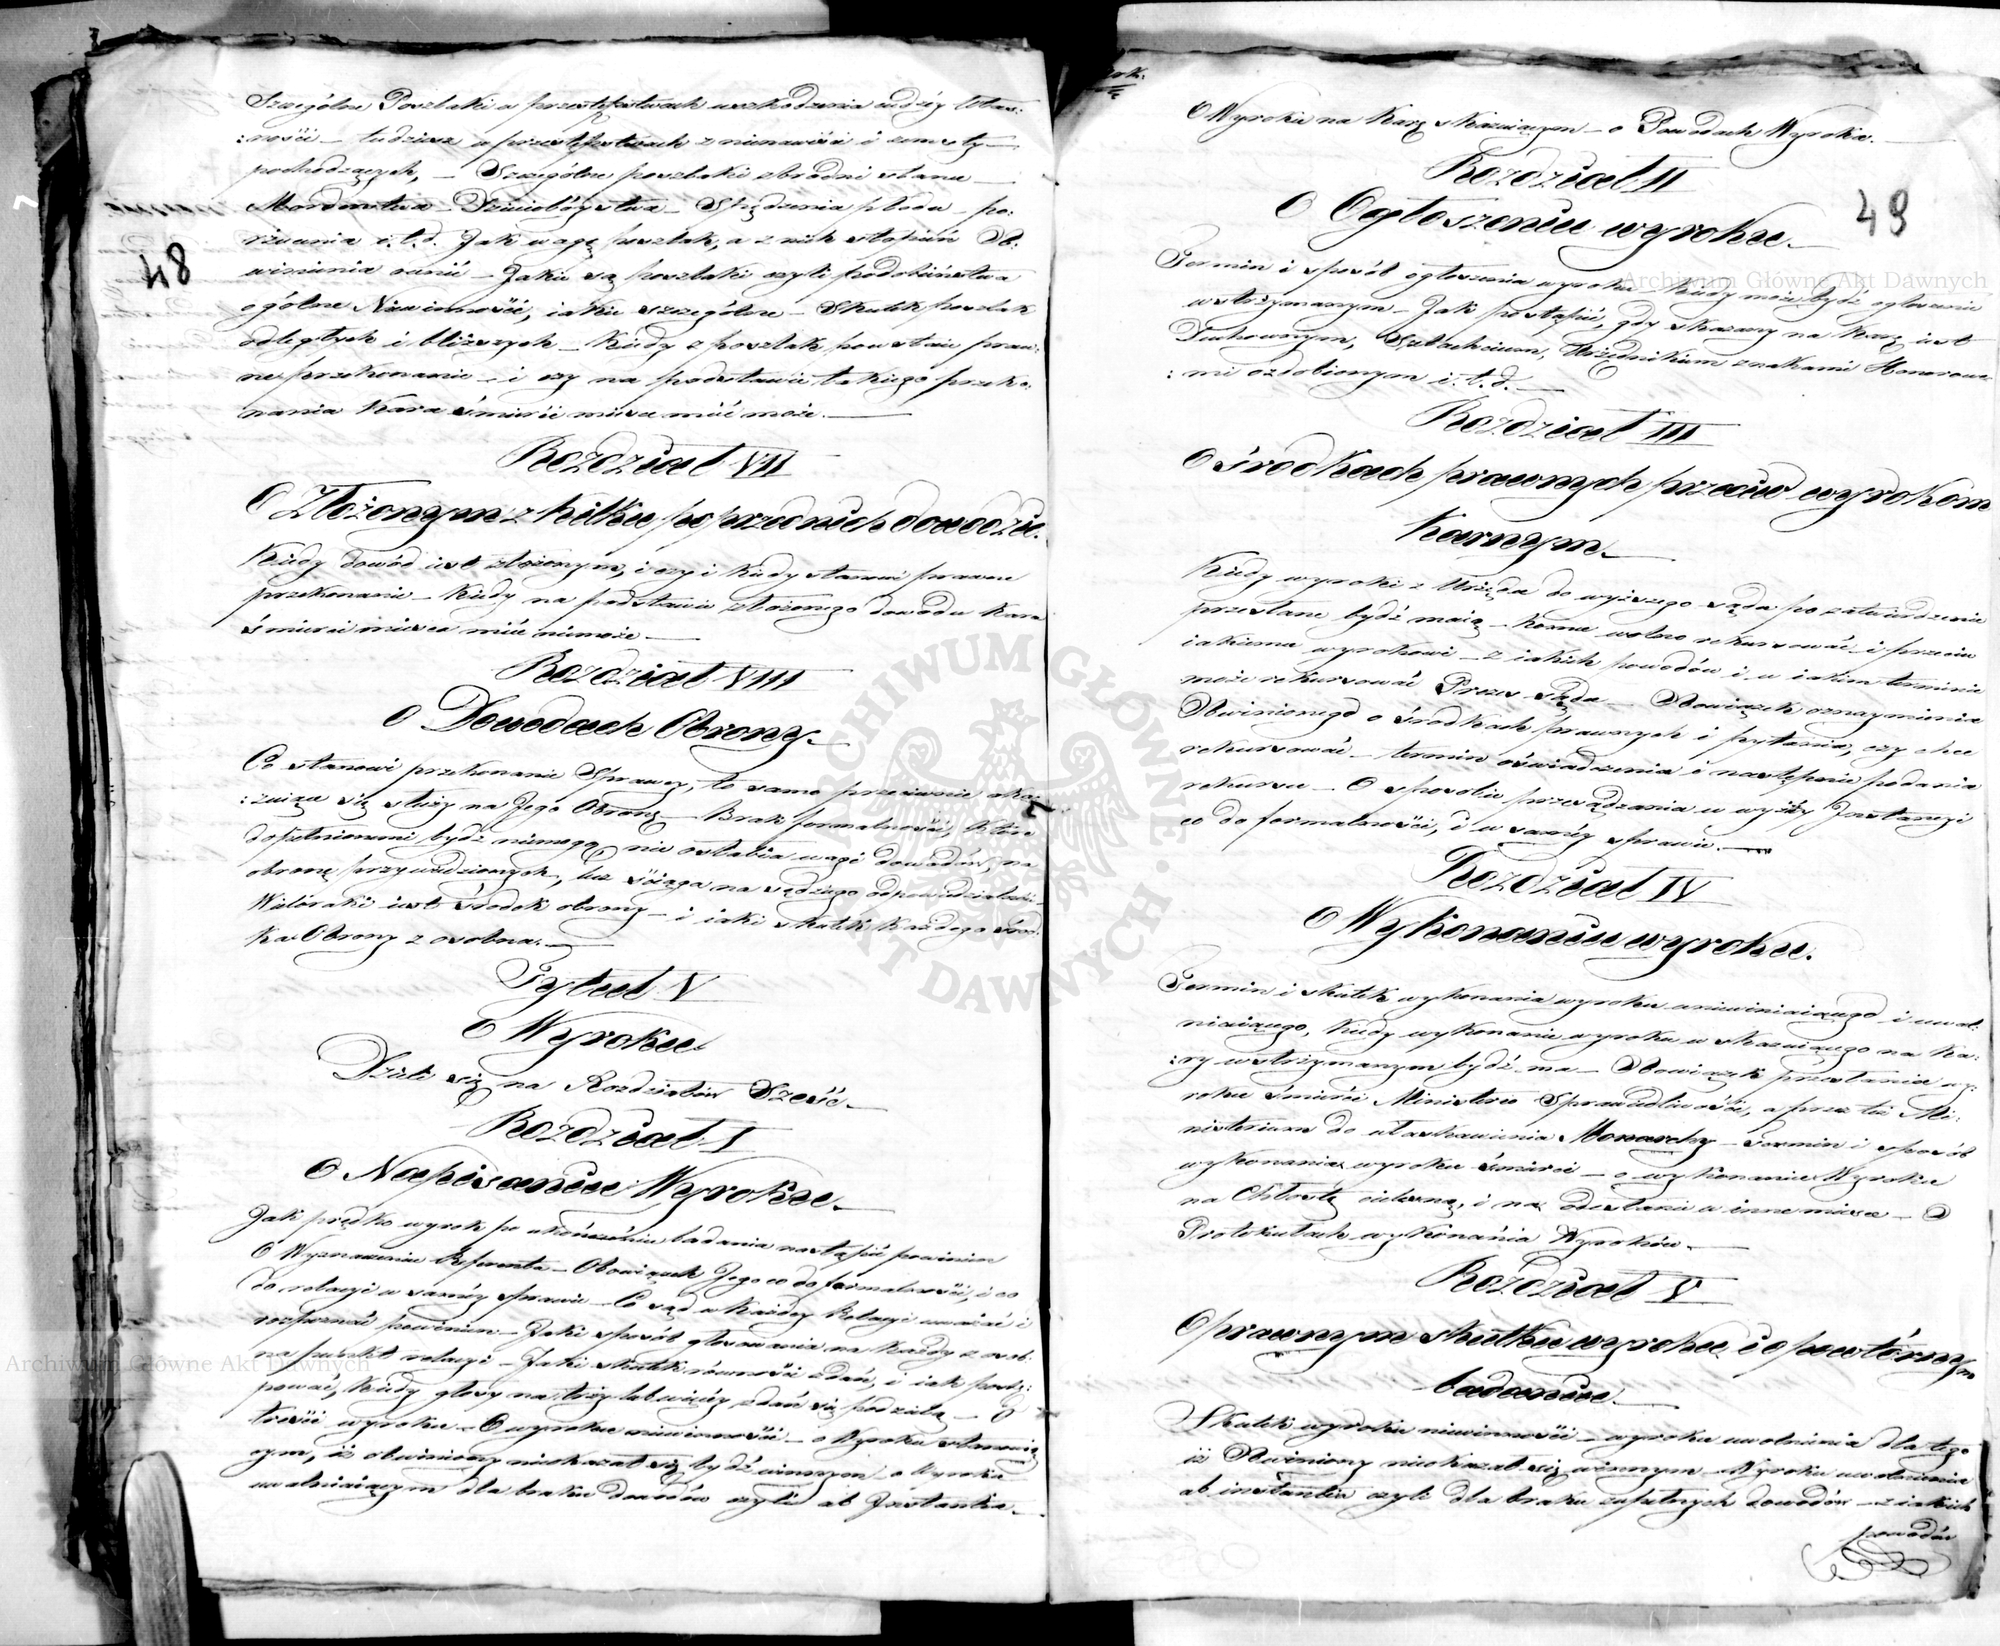 48
Szczególne Poszlaki w przestępstwach uszkodzenia cudzéy Włas:
:ności – tudzież w przestępstwach z nienawiści i zemsty –
pochodzących, – Szczególne poszlaki zbrodni stanu –
Morderstwa – Dzieciobóystwa – Spędzenia płodu – po:
rzucenia i.t.d. Jak wagę poszlak, a z nich stopień Ob:
winienia cenić – Jakie są poszlaki czyli podobieństwa
ogólne Niewinności, iakie szczególne – Skutek poszlak
odległych i bliższych – Kiedy z poszlak powstaie praw:
ne przekonanie – i czy na podstawie takiego przeko:
nania Kara śmierci miysce mieć może. –
Rozdział VII
O Złożonym z kilku poprzednich dowodzie.
Kiedy dowód iest złożonym, i czy i kiedy stanowi prawne
przekonanie – Kiedy na podstawie złożonego dowodu Kara
śmierci miysca mieć niemoże –
Rozdział VIII
O Dowodach Obrony. –
Co stanowi przekonanie Sprawcy, to samo przeciwnie oka:
:zuiąc się służy na Jego Obronę – Brak formalności, które
dopełnionemi bydź niemogą nie osłabia wagi dowodów, na
obronę przywiedzionych, lecz ściąga na sędziego odpowiedzialność –
Wieloraki iest środek obrony – i iaki skutek każdego środ:
ka Obrony z osobna. –
Tytuł V
O Wyroku
Dzieli się na Rozdziałów Sześć –
Rozdział I
O Napisaniu Wyroku. –
Jak prędko wyrok po ukończeniu badania nastąpić powinien
O Wyznaczeniu Referenta – Obowiązek Jego co do formalności, i co
do relacyi w saméy sprawie – Co sąd w każdey Relacyi uważać i
rozpoznać powinien – Jaki sposób głosowania na każdy z osob:
na punkt relacyi – Jaki skutek równości zdań, i iak postę:
pować, kiedy głosy na trzy lub więcéy zdań się podzielą – O
treści wyroku – O wyroku niewinności – o Wyroku stanowią
cym, iż obwiniony nieokazał się bydź winnym o Wyroku
uwalniaiącym dla braku dowodów czyli ab Instantia –
49
O Wyroku na karę skazuiącym – o Powodach Wyroku. –
Rozdział II
O Ogłoszeniu wyroku –
Termin i sposób ogłoszenia wyroku – Kiedy może bydź ogłoszenie
wstrzymanym – Jak postąpić, gdy skazany na karę iest
Duchownym, Szlachcicem, Urzędnikiem znakami Honorowe:
:mi ozdobionym i.t.d. –
Rozdział III
O środkach prawnych przeciw wyrokom
Karnym –
Kiedy wyroki z Urzędu do wyższego sądu po zatwierdzenie
przesłane bydź maią – komu wolno rekursować – i przeciw
iakiemu wyrokowi – z iakich powodów i w iakim terminie
może rekursować Prezes sądu – Obowiązek oznaymienia
Obwinionego o środkach prawnych i pytania, czy chce
rekursować – termin oświadczenia i następnie podania
rekursu – O sposobie przesądzania w wyższéy Instancyi
co do formalności, i w saméy sprawie. –
Rozdział IV
O Wykonaniu wyroku.
Termin i skutek wykonania wyroku uniewinniaiącego i uwal:
niaiącego, Kiedy wykonanie wyroku w skazuiącego na ka:
:ry wstrzymanym bydź ma – Obowiązek przesłania wy:
roku śmierci Ministrio Sprawiedliwości, a przez też Mi:
nisterium do ułaskawienia Monarchy – Termin i sposób
wykonania wyroku śmierci – o wykonaniu Wyroku
na Chłostę cielesną, i na odesłanie w inne miysce – O
Protokułach wykonania Wyroków. –
Rozdział V
O prawnym skutku wyroku i o powtórnym
badaniu –
Skutek wyroku niewinności – wyroku uwolnienia dla tego
iż Obwiniony nieokazał się winnym – Wyroku uwolnienia
ab instantia czyli dla braku zupełnych dowodów – z iakich
powodów
Archiwum Główne Akt Dawnych
Archiwum Główne Akt Dawnych
ARCHIWUM GŁÓWNE AKT DAWNYCH